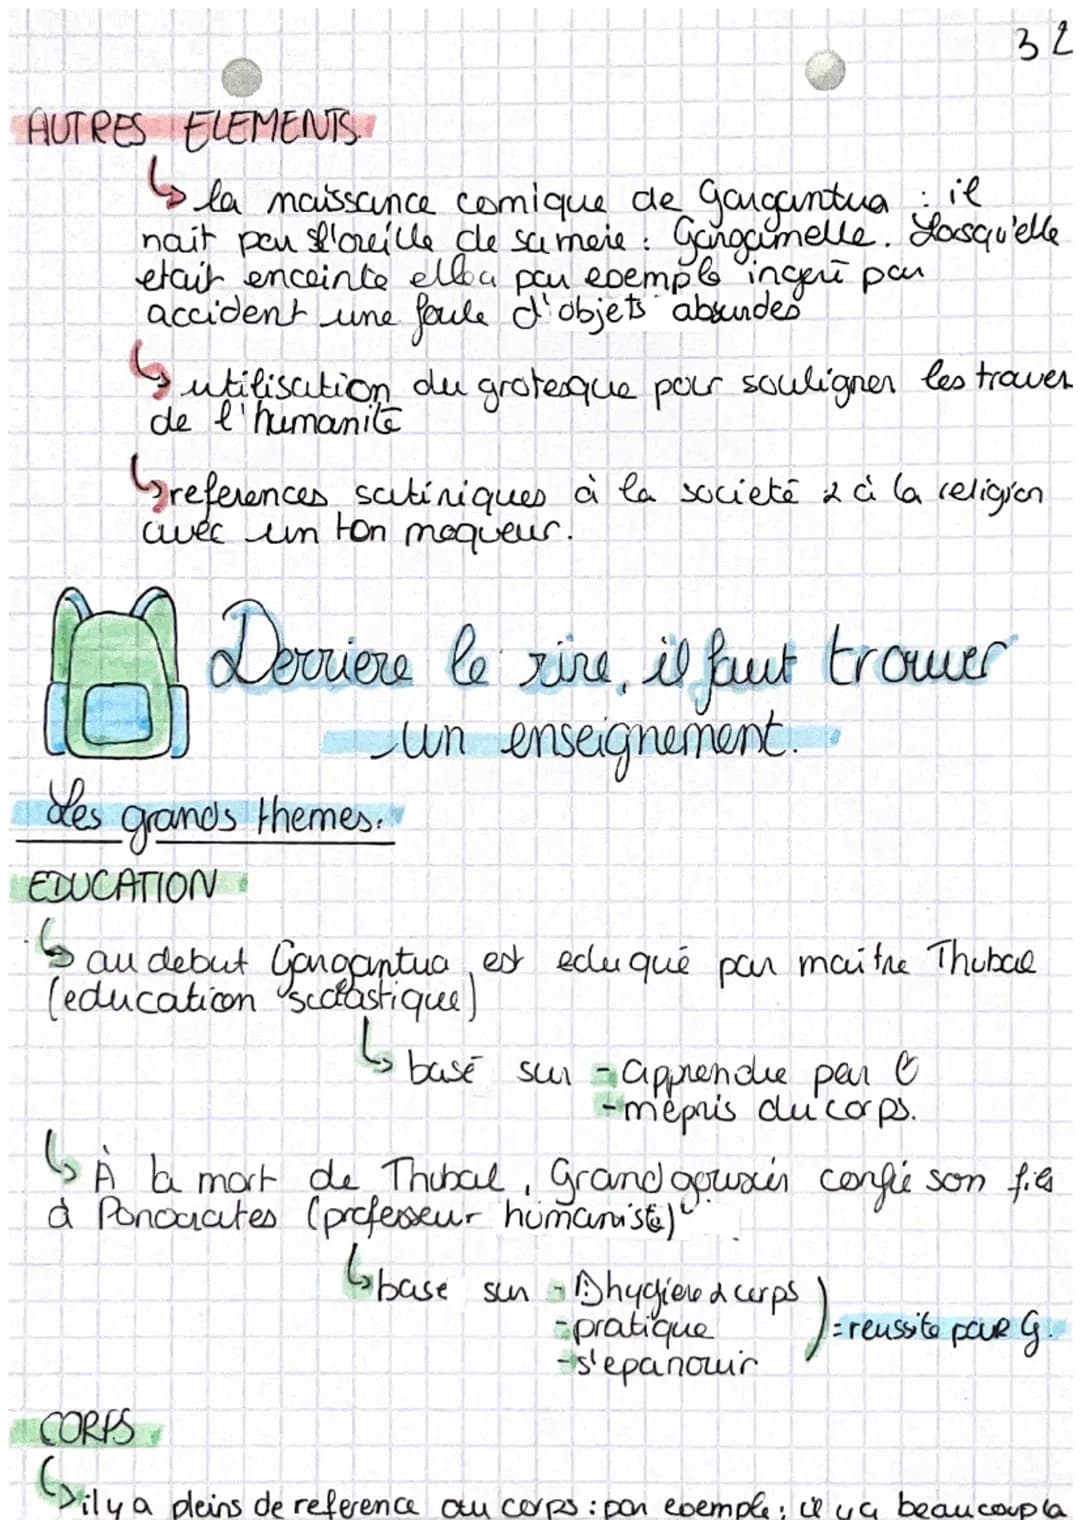 32
AUTRES ELEMENTS.
↳ la naissance comique de Gargantua : il
nait par l'oreille de sa mere : Gargamelle. Lorsqu'elle
etait enceinte elle a par exemple ingeré par
accident une foule d'objets absurdes
↳ utilisation du grotesque pour souligner les traver
de l'humanité
↳ references satiriques à la societé & à la religion
avec un ton moqueur.
Derriere le rire, il faut trouver
un enseignement.
Les grands themes.
EDUCATION
↳ au debut Gargantua est eduqué par maitre Thubal
(education scolastique)
↳ basé sur - apprendre par ♡
- mépris du corps.
↳ À la mort de Thubal, Grandgousier confie son fils
à Ponocrates (professeur humaniste)
↳ base sur - ⚠ hygiene & corps
- pratique
- s'epanouir
= reussite pour G.
CORPS
↳ il y a pleins de reference au corps : par exemple : il y a beaucoup la